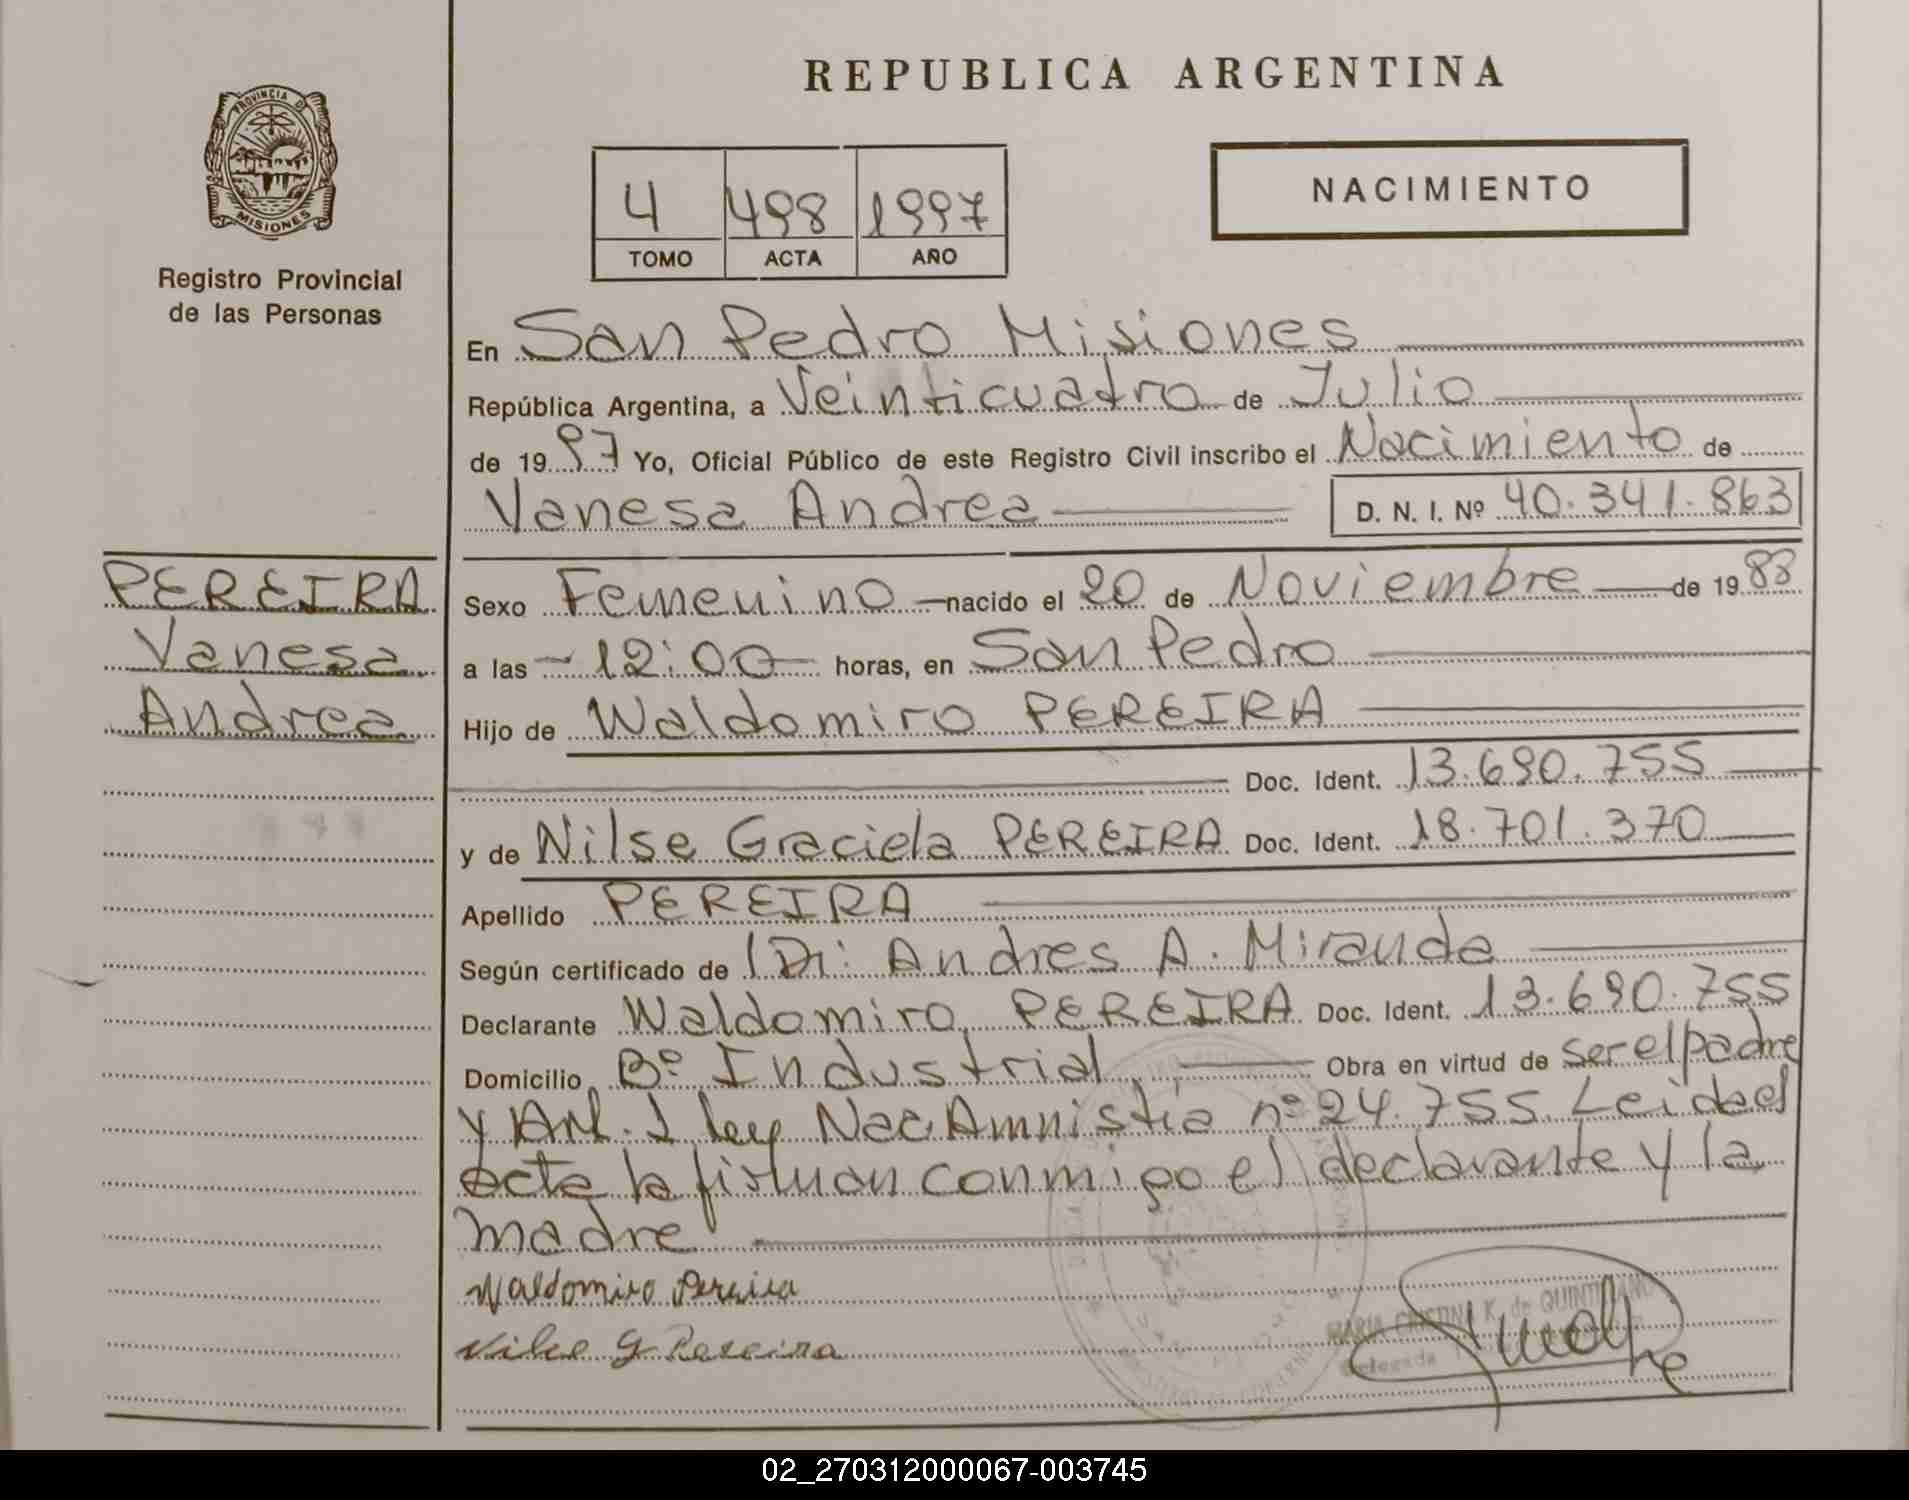 REPUBLICA ARGENTINA
PROVINCIA D
MISIONES
Registro Provincial
de las Personas
4 498 1997
TOMO ACTA AÑO
NACIMIENTO
En San Pedro Misiones
República Argentina, a Veinticuatro de Julio
de 19 97 Yo, Oficial Público de este Registro Civil inscribo el Nacimiento de
Vanesa Andrea D. N. I. Nº 40.341.863
PEREIRA
Vanesa
Andrea
Sexo Femenino nacido el 20 de Noviembre de 19 88
a las 12:00 horas, en San Pedro
Hijo de Waldomiro PEREIRA
Doc. Ident. 13.690.755
y de Nilse Graciela PEREIRA Doc. Ident. 18.701.370
Apellido PEREIRA
Según certificado de Dr: Andres A. Miranda
Declarante Waldomiro PEREIRA Doc. Ident. 13.690.755
Domicilio Bº Industrial Obra en virtud de ser el padre
y Art. 1 ley Nac Amnistia nº 24.755. Leida el
acta la firman conmigo el declarante y la
madre
Waldomiro Pereira
Nilse G Pereira
MARIA CRISTINA K. de QUINTIANO
Delegada
02_270312000067-003745